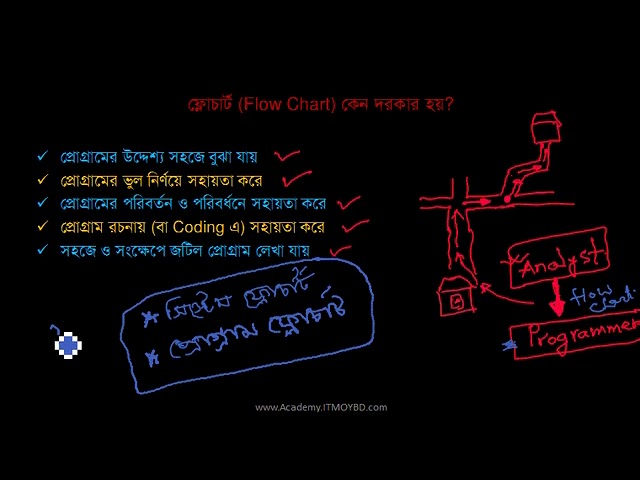 ফ্লোচার্ট (Flow Chart) কেন দরকার হয়?
প্রোগ্রামের উদ্দেশ্য সহজে বুঝা যায়
প্রোগ্রামের ভুল নির্ণয়ে সহায়তা করে
প্রোগ্রামের পরিবর্তন ও পরিবর্ধনে সহায়তা করে
প্রোগ্রাম রচনায় (বা Coding এ) সহায়তা করে
সহজে ও সংক্ষেপে জটিল প্রোগ্রাম লেখা যায়
সিস্টেম ফ্লোচার্ট
প্রোগ্রাম ফ্লোচার্ট
Analyst
Flow
Chart
Programmer
www.Academy.ITMOYBD.com